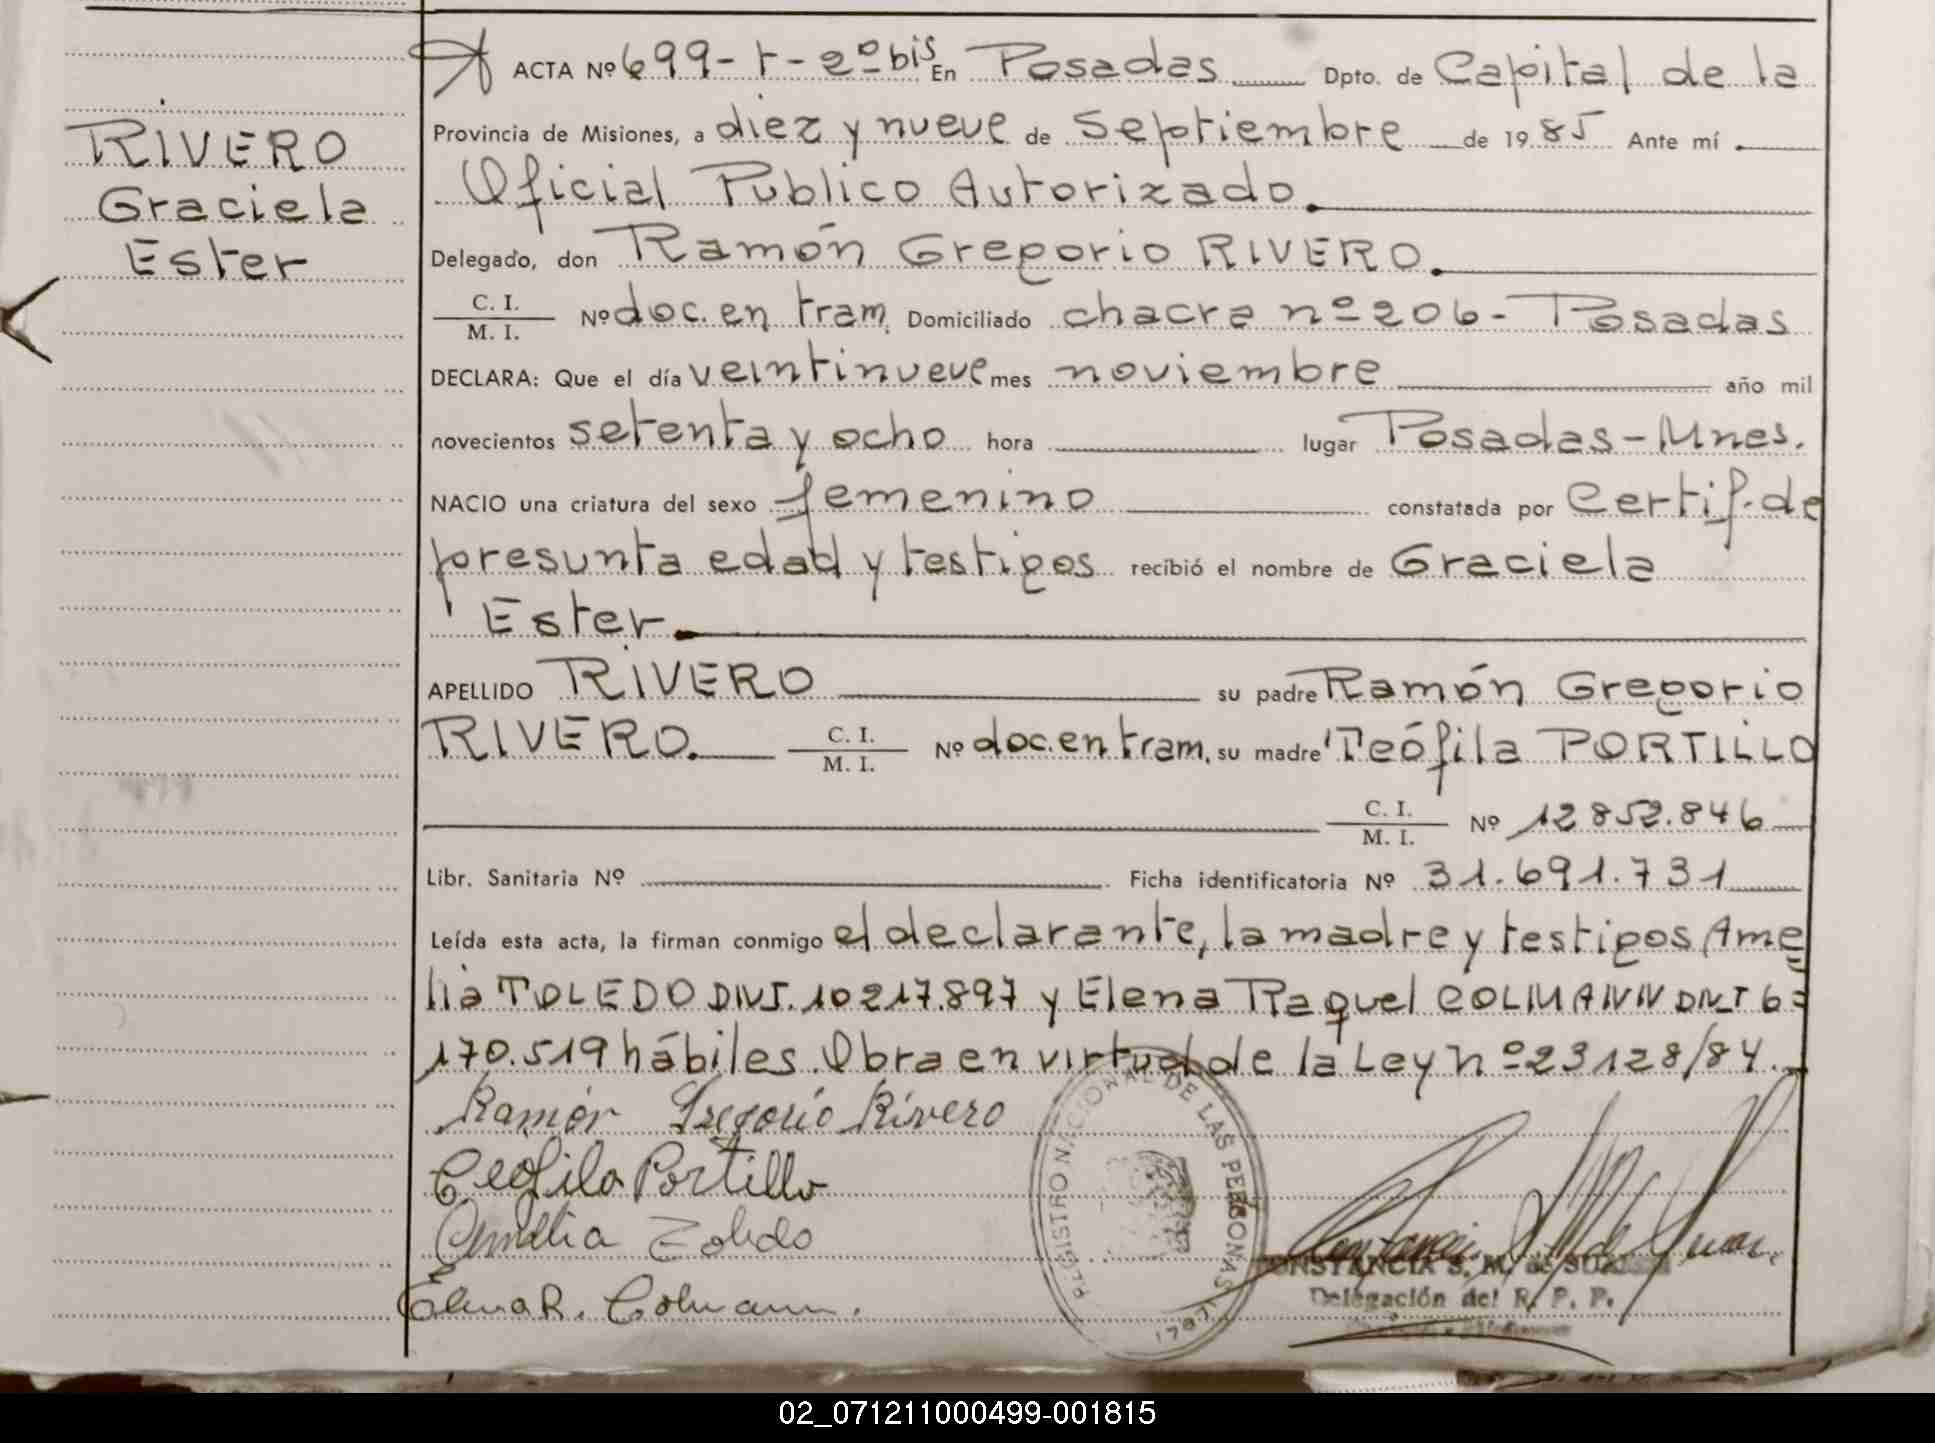 RIVERO
Graciela
Ester
ACTA Nº 699-t-2º bis En Posadas Dpto. de Capital de la
Provincia de Misiones, a diez y nueve de Septiembre de 1985 Ante mí
Oficial Público Autorizado.
Delegado, don Ramón Gregorio RIVERO.
C. I.
M. I. Nº doc. en tram. Domiciliado chacra nº 206 - Posadas
DECLARA: Que el día veintinueve mes noviembre año mil
novecientos setenta y ocho hora lugar Posadas - Mnes.
NACIO una criatura del sexo femenino constatada por Certif. de
presunta edad y testigos recibió el nombre de Graciela
Ester.
APELLIDO RIVERO su padre Ramón Gregorio
RIVERO. C. I. M. I. Nº doc. en tram. su madre Teófila PORTILLO
C. I. M. I. Nº 12852.846
Libr. Sanitaria Nº Ficha identificatoria Nº 31.691.731
Leída esta acta, la firman conmigo el declarante, la madre y testigos Ame
lia TOLEDO DNI. 10217.897 y Elena Raquel COLMANN DNI 6=
170.519 hábiles. Obra en virtud de la Ley nº 23128/84.
Ramón Gregorio Rivero
Teofila Portillo
Amelia Toledo
Elena R. Colmann.
REGISTRO NACIONAL DE LAS PERSONAS
CONSTANCIA S. M. de
Delegación del R. P. P.
02_071211000499-001815